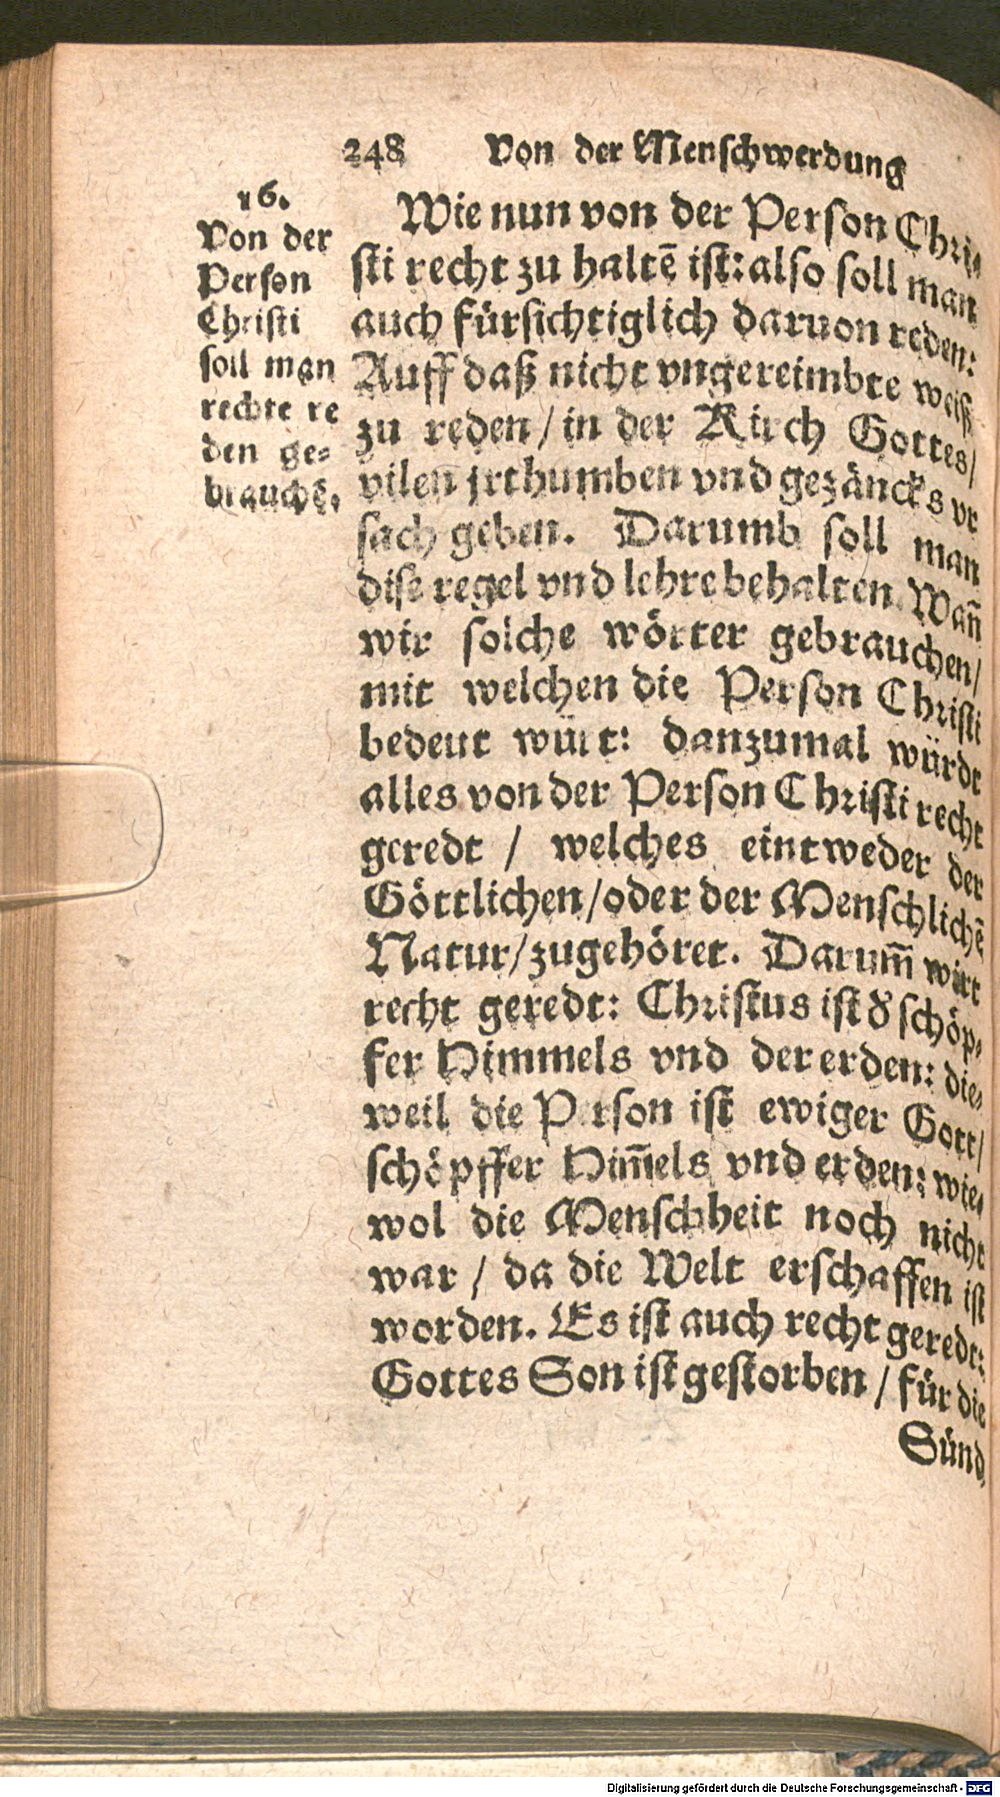 248 Von der Menschwerdung
16.
Von der
Person
Christi
soll man
rechte re
den ge-
brauchē.
Wie nun von der Person Chri-
sti recht zu haltē ist: also soll man
auch fürsichtiglich daruon reden:
Auff daß nicht vngereimbte weiß
zu reden / in der Kirch Gottes /
vilen jrthumben vnd gezäncks vr
sach geben. Darumb soll man
dise regel vnd lehre behalten. Wañ
wir solche wörter gebrauchen /
mit welchen die Person Christi
bedeut würt: danzumal würdt
alles von der Person Christi recht
geredt / welches eintweder der
Göttlichen / oder der Menschlichē
Natur / zugehöret. Darum̄ wirt
recht geredt: Christus ist d̕ schöp-
fer Himmels vnd der erden: die-
weil die Person ist ewiger Gott /
schöpffer Him̄els vnd erden: wie-
wol die Menschheit noch nicht
war / da die Welt erschaffen ist
worden. Es ist auch recht geredt:
Gottes Son ist gestorben / für die
Sünd
Digitalisierung gefördert durch die Deutsche Forschungsgemeinschaft - DFG